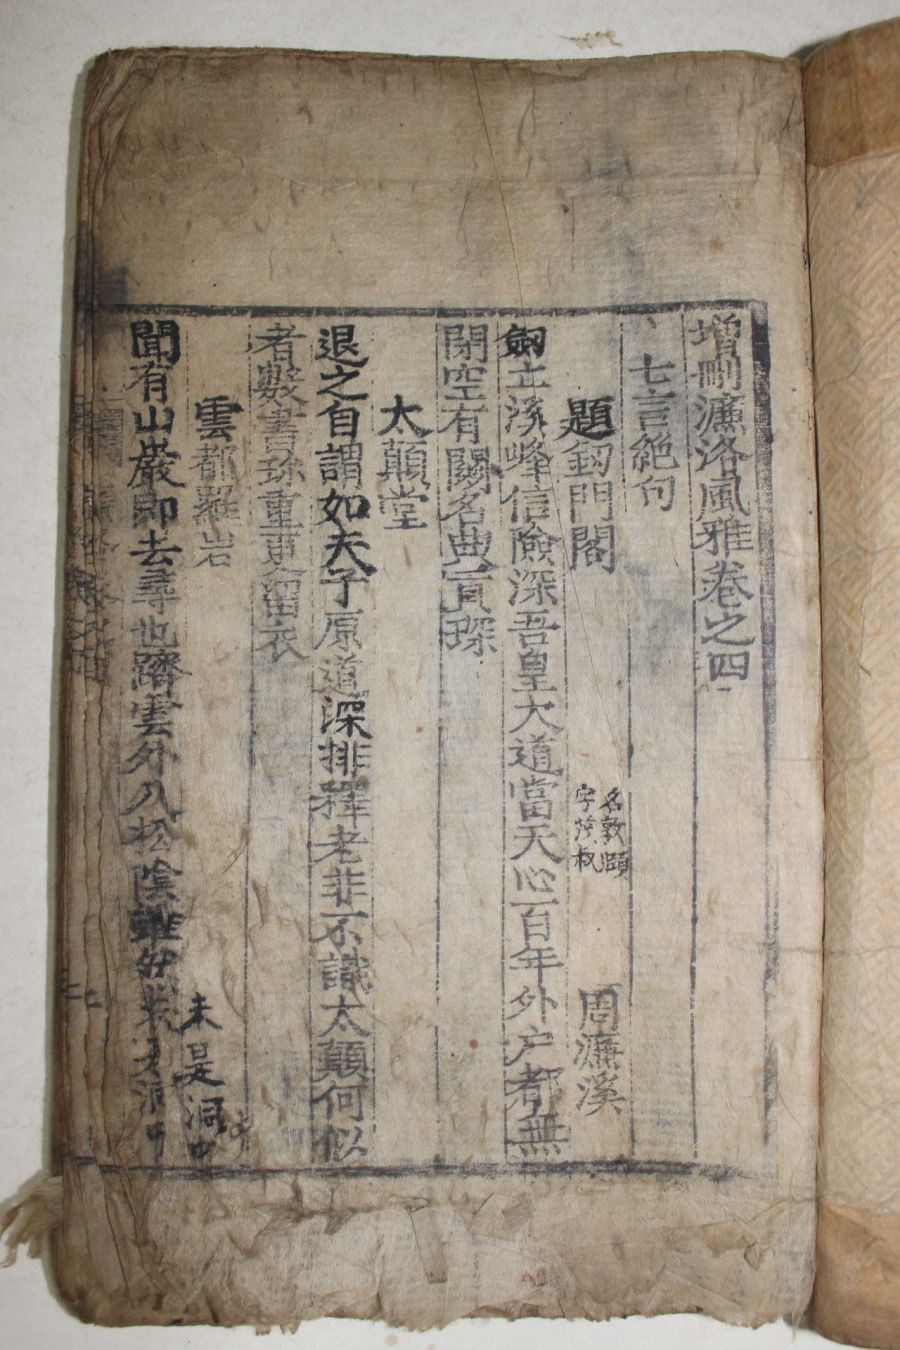 增刪濂洛風雅卷之四
七言絶句
題釰門閣 名敦頤 字茂叔 周濂溪
劒立溪峰信險深吾皇大道當天心百年外户都無
閉空有關名點貢琛
太顚堂
退之自謂如夫子原道深排釋老非不識太顚何似
者數書珍重更留衣
雲都羅岩
聞有山巖即去尋也躋雲外入松陰雖然
未是洞中